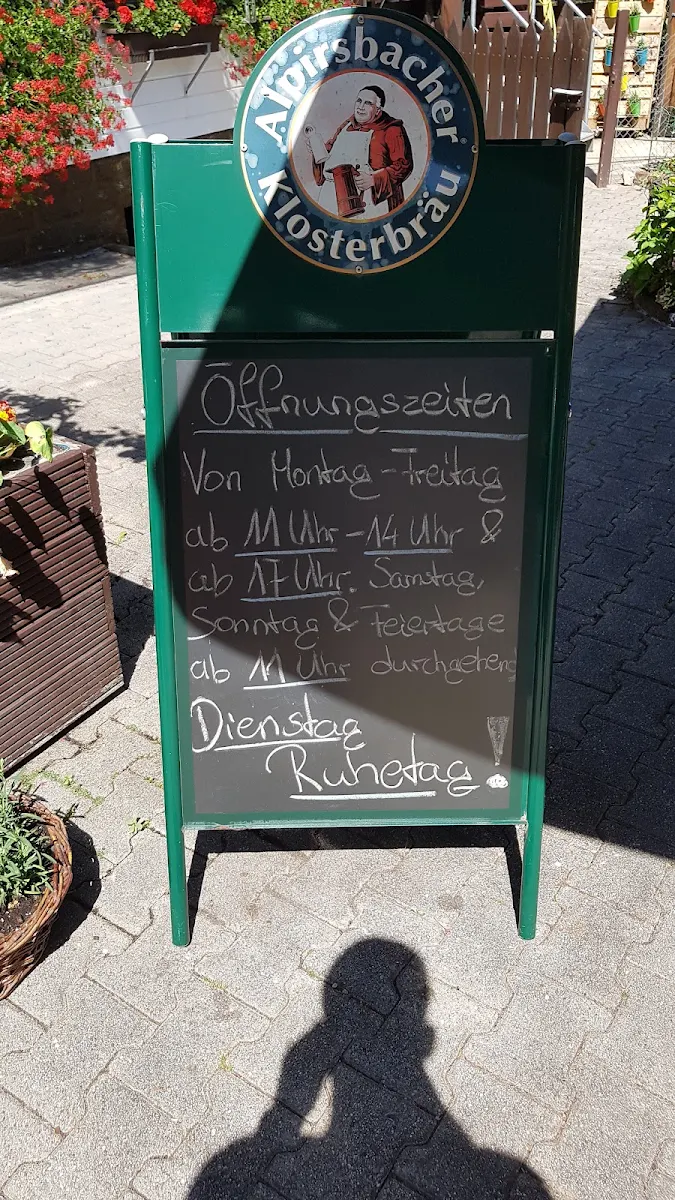 Alpirsbacher
Klosterbräu
Öffnungszeiten
Von Montag - Freitag
ab 11 Uhr - 14 Uhr &
ab 17 Uhr. Samstag,
Sonntag & Feiertage
ab 11 Uhr durchgehend
Dienstag
Ruhetag!